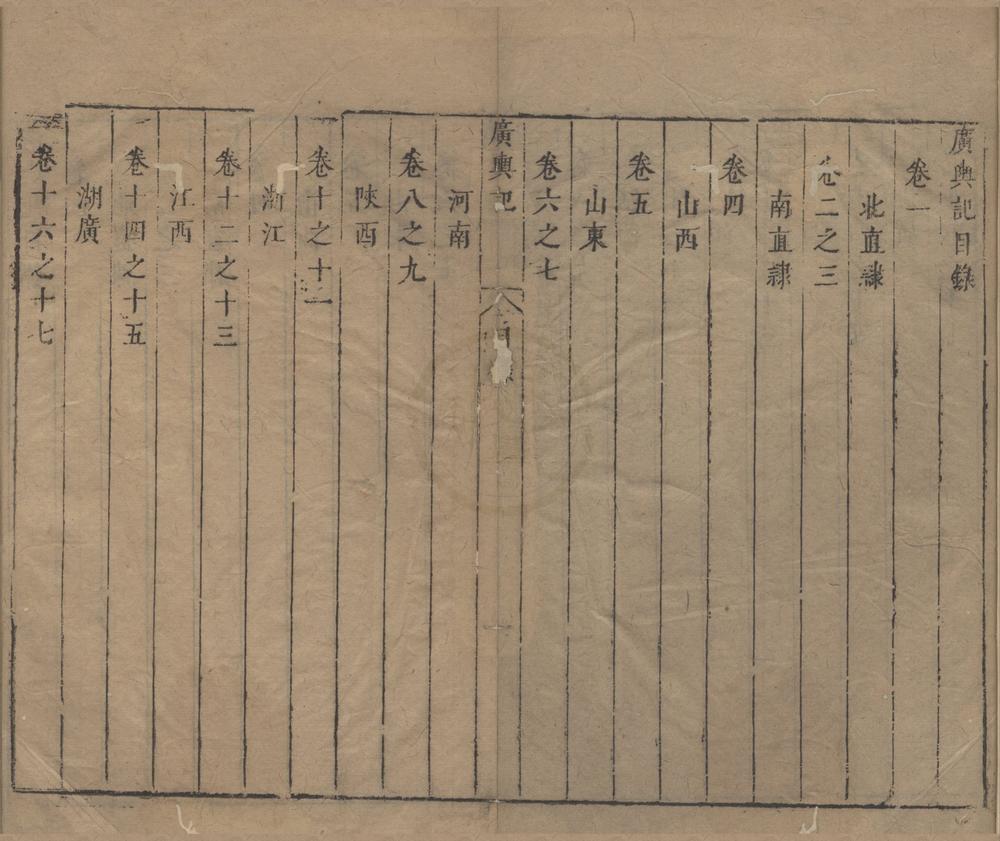 廣輿記目錄
卷一
北直隸
卷二之三
南直隸
卷四
山西
卷五
山東
卷六之七
廣輿記
目
河南
卷八之九
陜西
卷十之十一
浙江
卷十二之十三
江西
卷十四之十五
湖廣
卷十六之十七